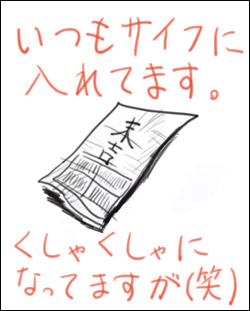 いつもサイフに
入れてます。
末吉
くしゃくしゃに
なってますが(笑)